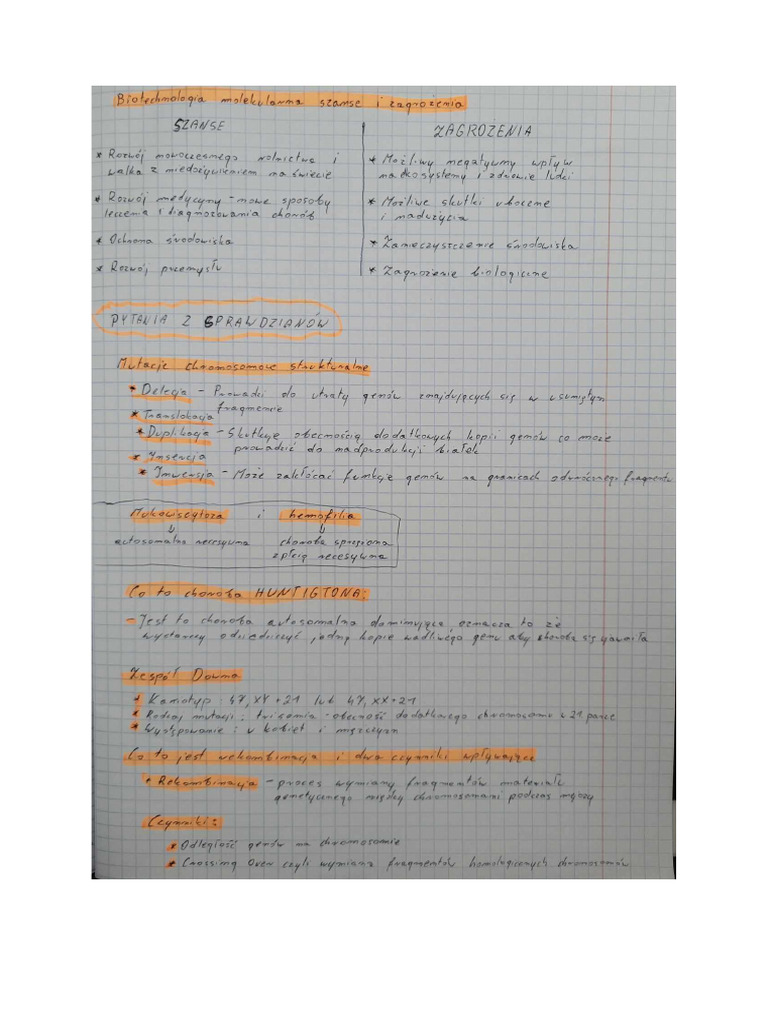 Biotechnologia molekularna szanse i zagrożenia
SZANSE
* Rozwój nowoczesnego rolnictwa i
walka z niedożywieniem na świecie
* Rozwój medycyny - nowe sposoby
leczenia i diagnozowania chorób
* Ochrona środowiska
* Rozwój przemysłu
ZAGROŻENIA
* Możliwy negatywny wpływ
na ekosystemy i zdrowie ludzi
* Możliwe skutki uboczne
i nadużycia
* Zanieczyszczenie środowiska
* Zagrożenie biologiczne
PYTANIA Z SPRAWDZIANÓW
Mutacje chromosomowe strukturalne
* Delecja - Prowadzi do utraty genów znajdujących się w usuniętym
fragmencie
* Translokacja
* Duplikacja - Skutkuje obecnością dodatkowych kopii genów co może
prowadzić do nadprodukcji białek
* Insercja
* Inwersja - Może zakłócać funkcje genów na granicach odwróconego fragmentu
Mukowiscytoza i hemofilia
autosomalna recesywna
choroba sprzężona
z płcią recesywna
Co to choroba HUNTIGTONA:
- Jest to choroba autosomalna dominująca oznacza to że
wystarczy odziedziczyć jedną kopie wadliwego genu aby choroba się ujawiła
Zespół Downa
* Kariotyp: 47, XY + 21 lub 47, XX + 21
* Rodzaj mutacji: trisomia - obecność dodatkowego chromosomu w 21 parze
* Występowanie: u kobiet i mężczyzn
Co to jest rekombinacja i dwa czynniki wpływające
* Rekombinacja - proces wymiany fragmentów materiału
genetycznego między chromosomami podczas mejozy
Czynniki:
* Odległość genów na chromosomie
* Crossing Over czyli wymiana fragmentów homologicznych chromosomów